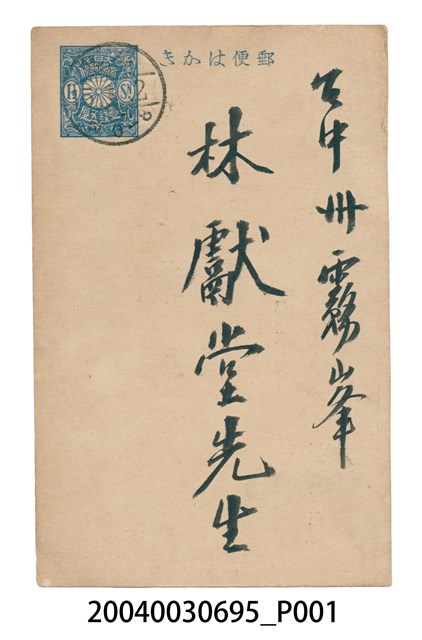 郵便はかき
台中州霧峯
林獻堂先生
1½ Sn.
20040030695_P001